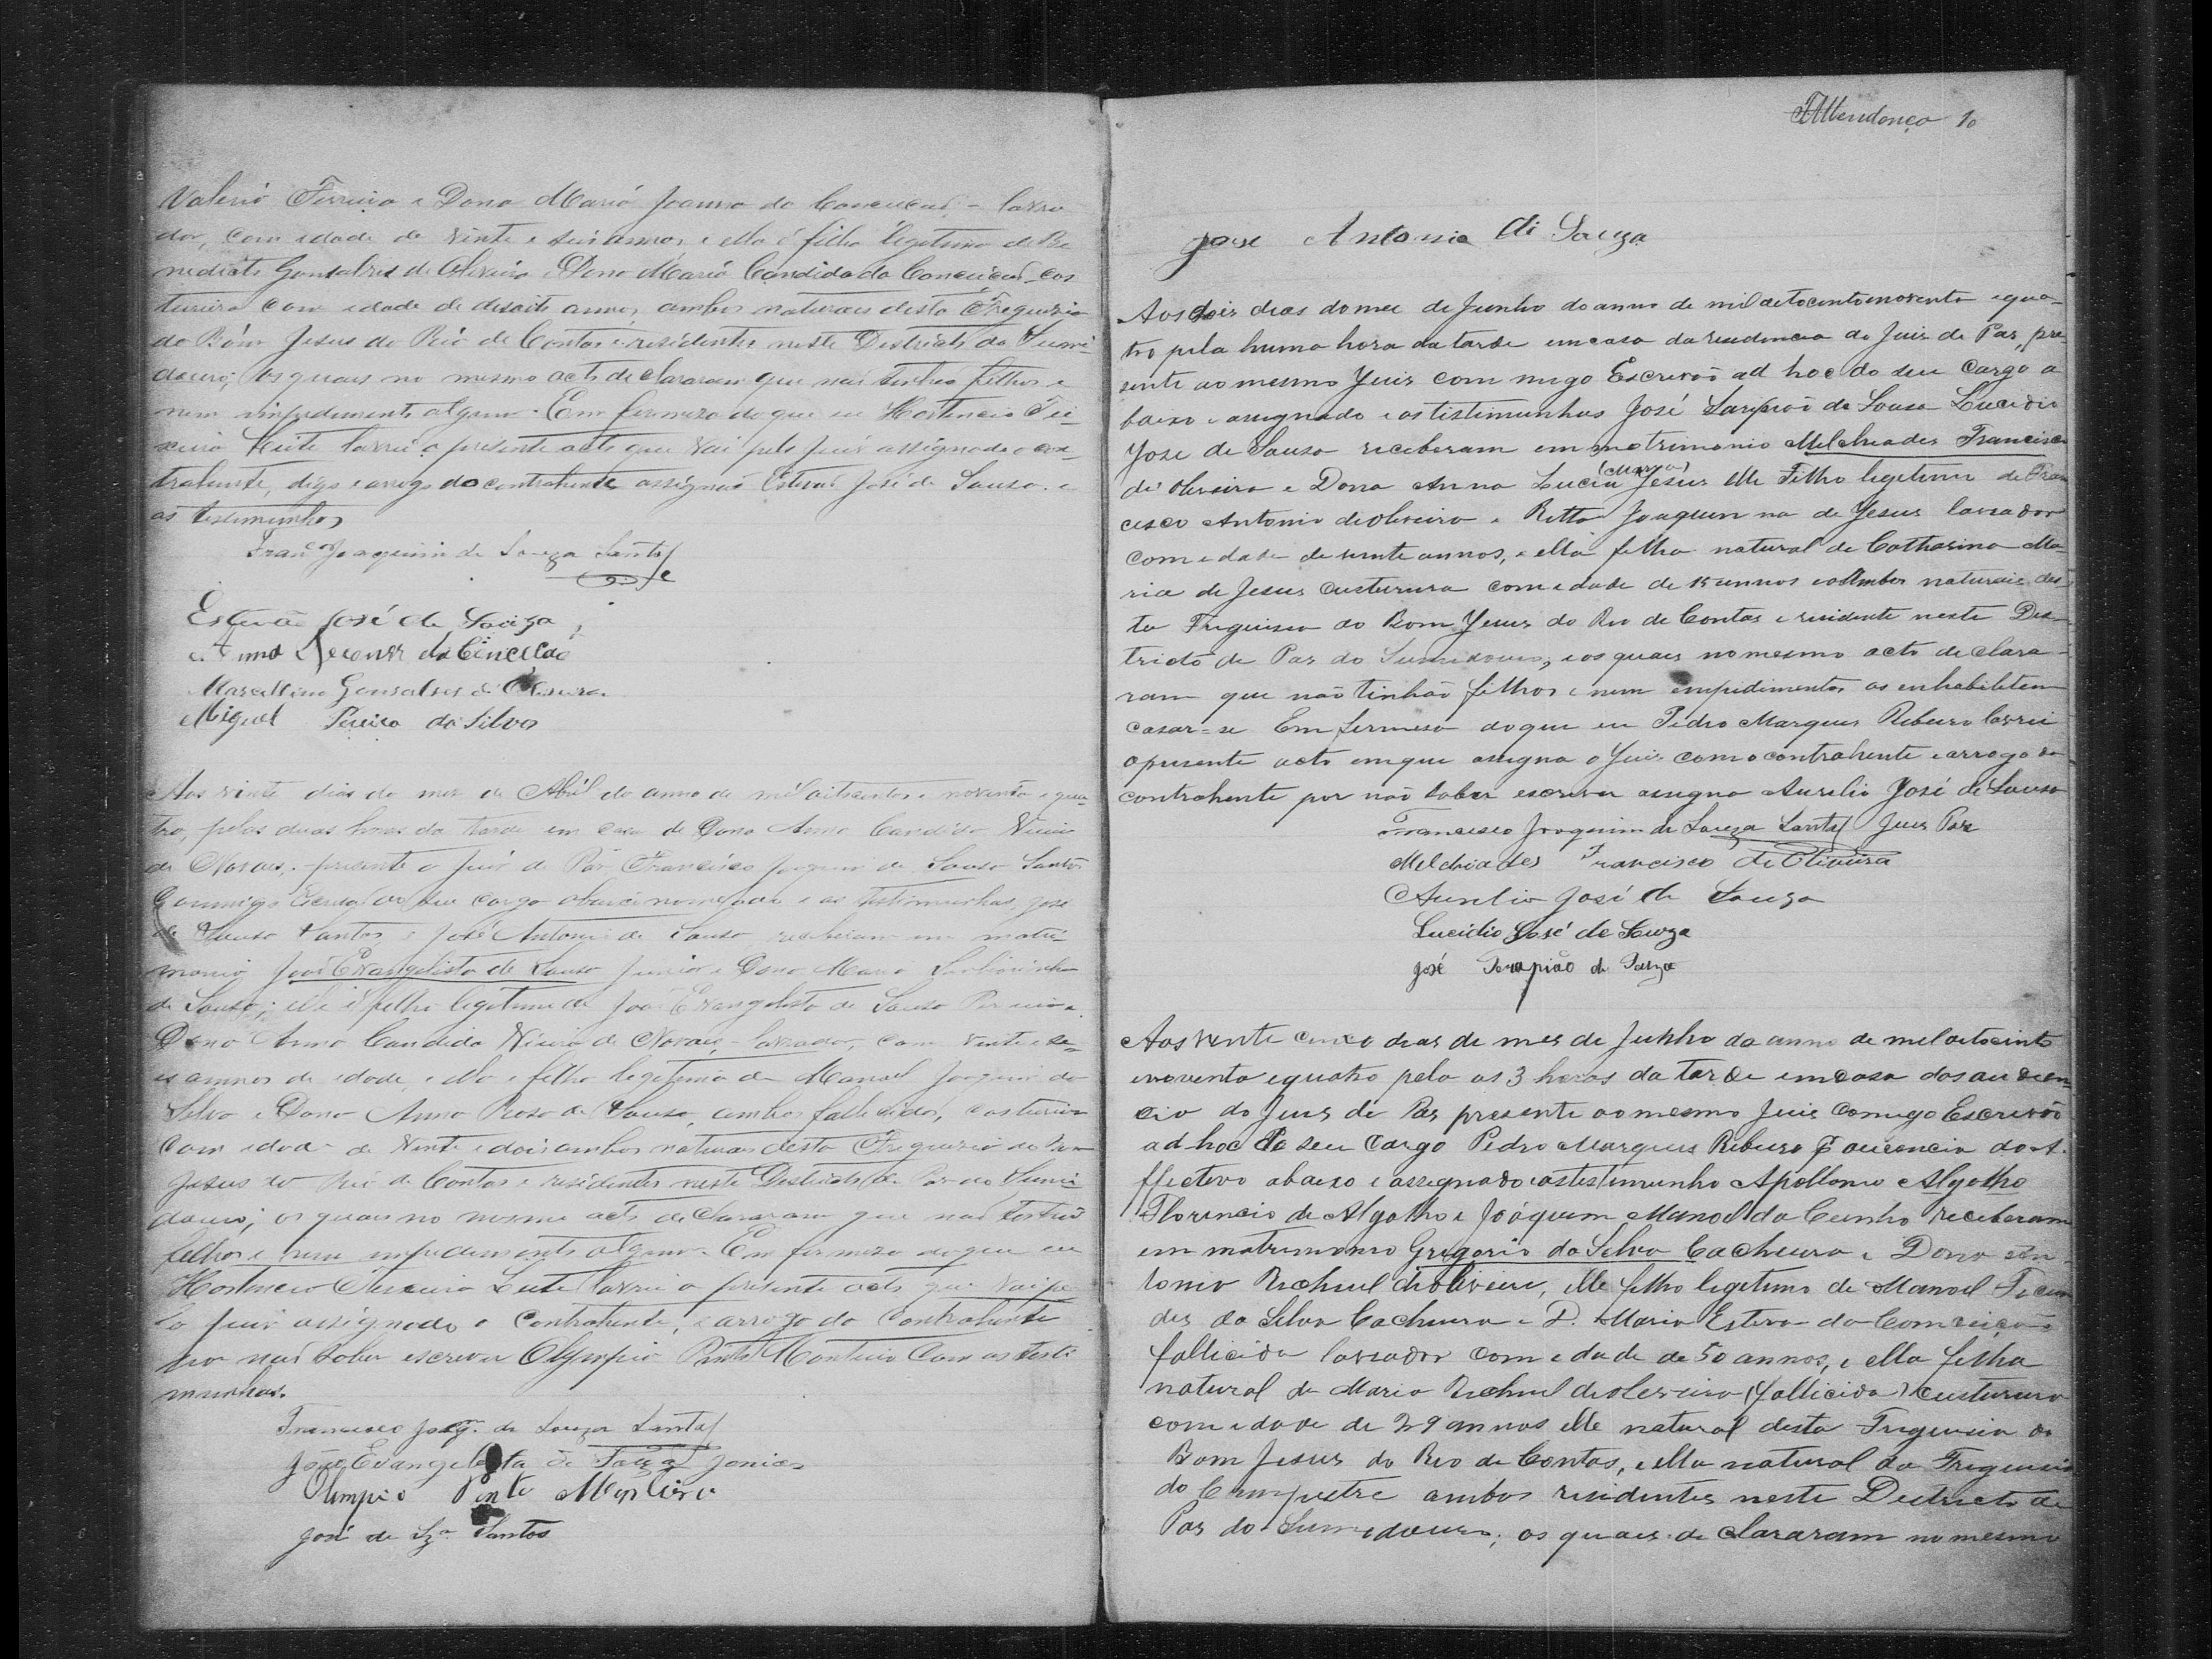 Valerio Ferreira e Dona Maria Joanna da Conceicaõ, - lavra
dor, com idade de vinte e seis annos, e ella é filha legitima de Be
nedicto Gonsalves de Oliveira e Dona Maria Candida da Conceiçaõ cos
tureira com idade de desoito annos, ambos naturaes desta Freguezia
do Bom Jesus do Rio de Contas e residentes neste Destricto do Sumi-
douro; os quaes no mesmo acto declararam que naõ tinhão filhos e
nem impedimento algum. Em firmeza do que eu Hortencio Tei-
xeira Leite lavrei o presente acto que vai pelo juis assignado o con-
trahente, digo e arrogo do contrahente assignou Estevaõ José de Sousa e
as testimunhas
Fran.co Joaquim de Souza Santos
Estevão José de Souza
Anna da Conceicão
Marcellino Gonsalves de Oliveira
Miguel Pereira da Silva
Aos vinte dias do mes de Abril do anno de mil oitocentos e noventa e qua-
tro, pelas duas horas da tarde em casa de Dona Anna Candida Vieira
de Novaes, presente o juis de Pas Francisco Joaquim de Sousa Santos
commigo Escrivaõ do seu cargo abaixo nomeado e as testimunhas, José
de Sousa Santos e José Antonio de Sousa receberam em matri-
monio João Evangelista de Sousa Junior e Dona Maria
de Sousa; elle é filho legitimo de João Evangelista de Sousa e
Dona Anna Candida Vieira de Novaes, lavrador, com vinte e se-
is annos de idade, e ella e filha legitima de Manoel Joaquim da
Silva e Dona Anna Rosa de Sousa, ambos fallecidos, costureira
com idade de vinte e dois ambos naturaes desta Freguezia do Bom
Jesus do Rio de Contas e residentes neste Destricto de Pas do Sumi
douro; os quaes no mesmo acto declararam que naõ
filhos e nem impedimento algum. Em firmeza do que eu
Hortencio Teixeira Leite lavrei o presente acto que vai pe
lo juis assignado o contrahente, e arrogo da contrahente
por naõ saber escrever Olympio Pinto Monteiro com as testi
munhas.
Francisco Joaq.m de Souza Santos
João Evangelista de Souza Junior
Olimpio Pinto Monteiro
José de Sz.a Santos
FAMendonça 10
Jose Antonio di Souza
Aos dois dias do mes de Junho do anno de mil oetocento enoventa e qua-
tro pela huma hora da tarde em casa da residencia do Juis de Pas, pre
sente ao mesmo Juis com migo Escrivão ad hoc do seu cargo a
baixo e assignado e as tistimunhas José Sarapião de Sousa Lucidio
Jose de Sousa receberam em matrimonio Melchiades Francisco
de Oliveira e Dona Anna Lucia (Maria) Jesus elle Filho legetimo de Fran
cisco Antonio de Oliveira e Ritta Joaquinna de Jesus lavrador
com edade de vinte annos, e ella filha natural de Catharina Ma
ria de Jesus custurura com edade de 15 annos e ambos naturais des
ta Freguisia do Bom Jesus do Rio de Contas e residente neste Des
tricto de Pas do Sumidouro, e os quais no mesmo acto declara-
ram que não tinhão filhos e nem empidimentos os enhabilitem
casar=se Em firmesa do que eu Pedro Marques Ribeiro lavrei
o presente acto em que assigna o Juis com o contrahente e arrogo da
contrahente por não saber escrever assigna Aurelio José de Sousa
Francisco Joaquim de Souza Santos Juis Pas
Melchiades Francisco de Oliveira
Aurelio José de Souza
Lucidio José de Souza
José Serapião de Souza
Aos vente cinco dias de mes de Junho do anno de mel oetocinto
enoventa equatro pelo as 3 horas da tarde em casa das audien
cia do Juis de Pas presente ao mesmo Juis Comigo Escrivão
ad hoc do seu cargo Pedro Marques Ribeiro p auzencia do A.
ffectivo abaixo e assegnado e as testimunho Apollonio Algolho
Florencio de Algolho e Joáquem Manoel da Cunho receberam
em matrimonio Gregorio da Silva Cachuera e Dona An-
tonia de Oliveira, elle filho legetimo de Manoel
des da Silva Cachuera e D. Maria Esteva da Comceiçaõ
fallicida lavrador com edade de 50 annos, e ella filha
natural de Maria de Oliveira (fallicida) custurura
com edade de 29 annos elle natural desta Freguisia do
Bom Jesus do Rio de Contas, e ella natural da Freguisia
do Campestre ambos residentes neste Destricto de
Pas do Sumidouro; os quaes declararam no mesmo